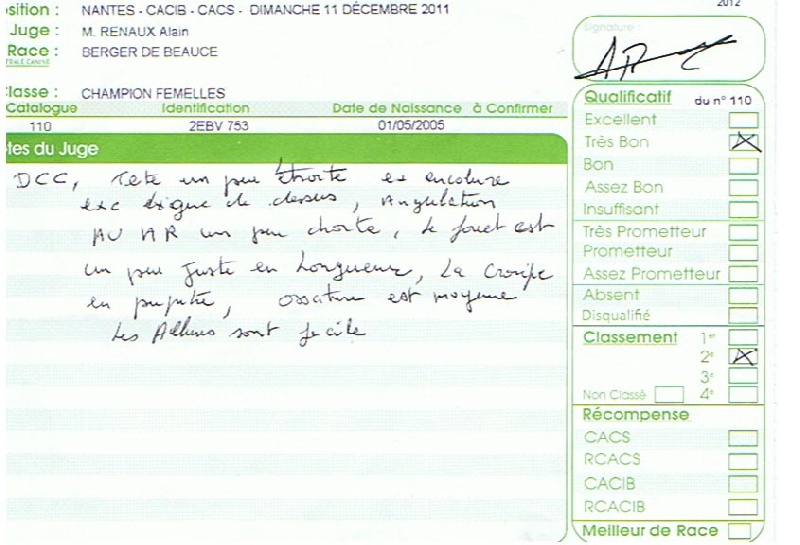 2012
sition : NANTES - CACIB - CACS - DIMANCHE 11 DÉCEMBRE 2011
Juge : M. RENAUX Alain
Race : BERGER DE BEAUCE
TRALE CANINE
lasse : CHAMPION FEMELLES
Catalogue Identification Date de Naissance à Confirmer
110 2EBV 753 01/05/2005
tes du Juge
DCC, Tete un peu étroite et encolure
exc ligne de dessus, Angulation
AU AR un peu droite, Le fouet est
un peu juste en Longueur, La Croupe
en pupitre, ossature est moyenne
Les Allures sont facile
Signature :
Qualificatif du n° 110
Excellent
Très Bon X
Bon
Assez Bon
Insuffisant
Très Prometteur
Prometteur
Assez Prometteur
Absent
Disqualifié
Classement 1er
2e X
3e
Non Classé 4e
Récompense
CACS
RCACS
CACIB
RCACIB
Meilleur de Race